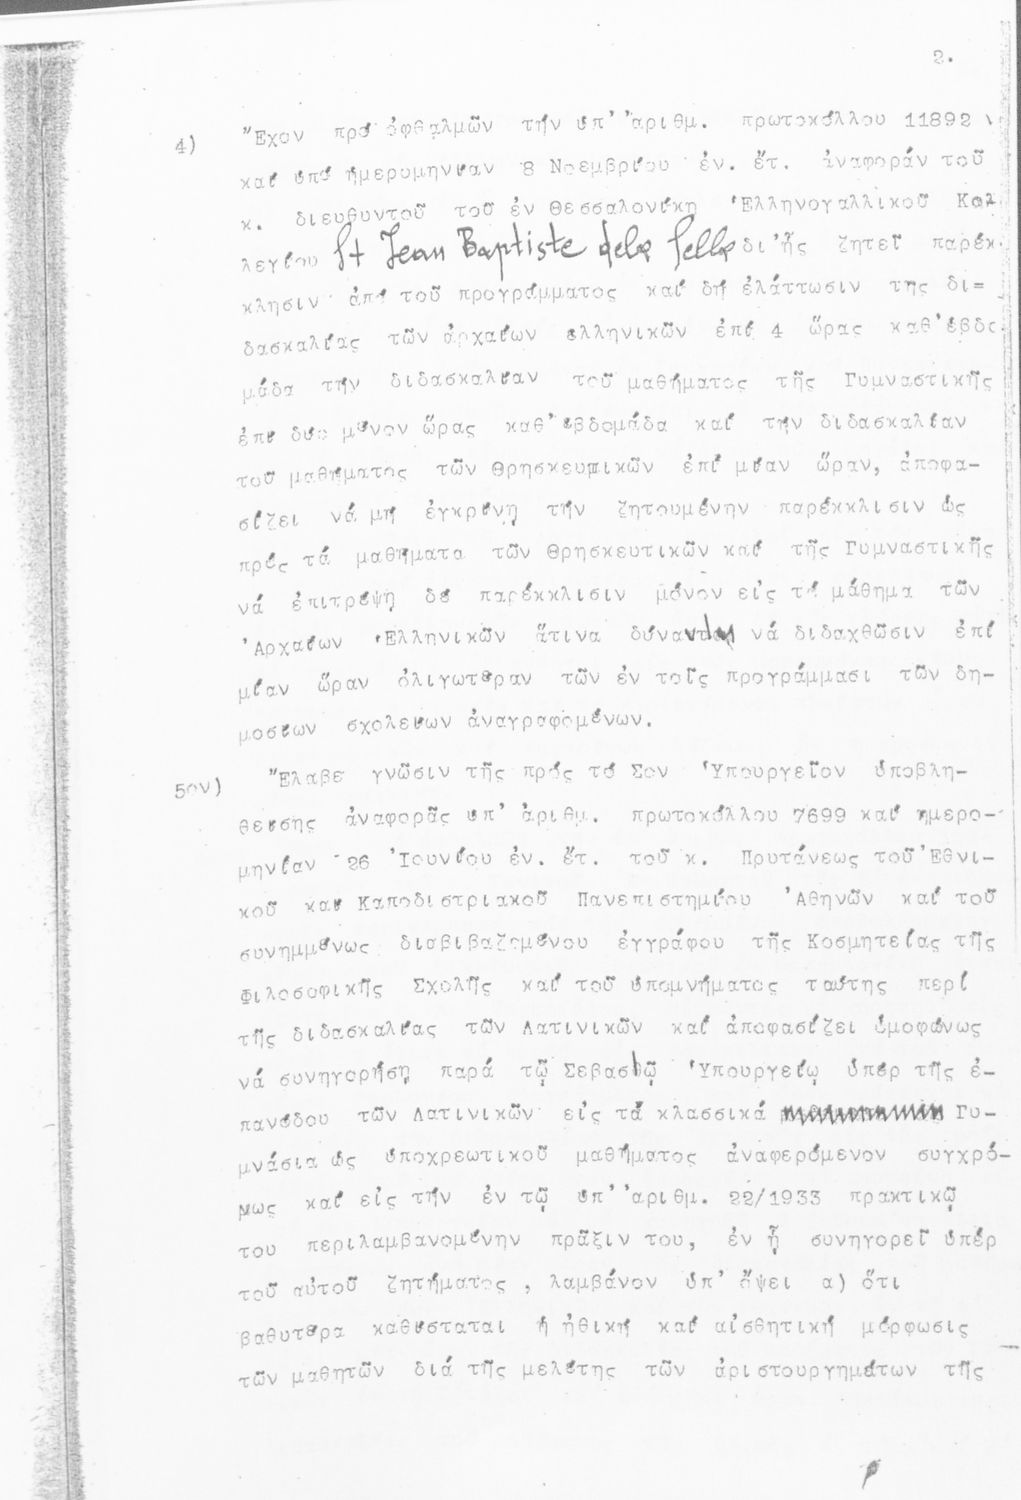 2.
4) Ἔχον πρό ὀφθαλμῶν τήν ὑπ' ἀριθμ. πρωτοκόλλου 11892
καί ὑπό ἡμερομηνίαν 8 Νοεμβρίου ἐν. ἔτ. ἀναφοράν τοῦ
κ. διευθυντοῦ τοῦ ἐν Θεσσαλονίκῃ Ἑλληνογαλλικοῦ Κολ
λεγίου St Jean Baptiste dela Salle δι' ἧς ζητεῖ παρέκ
κλησιν ἀπό τοῦ προγράμματος καί δή ἐλάττωσιν της δι=
δασκαλίας τῶν ἀρχαίων ελληνικῶν ἐπί 4 ὥρας καθ' ἑβδο
μάδα τήν διδασκαλίαν τοῦ μαθήματος τῆς Γυμναστικῆς
ἐπί δυο μόνον ὥρας καθ' ἑβδομάδα καί τήν διδασκαλίαν
τοῦ μαθήματος τῶν Θρησκευτικῶν ἐπί μίαν ὥραν, ἀποφα-
σίζει νά μή ἐγκρίνῃ τήν ζητουμένην παρέκκλισιν ὡς
πρός τά μαθήματα τῶν Θρησκευτικῶν καί τῆς Γυμναστικῆς
νά ἐπιτρέψῃ δέ παρέκκλισιν μόνον εἰς τό μάθημα τῶν
Ἀρχαίων Ἑλληνικῶν ἅτινα δύνανται νά διδαχθῶσιν ἐπί
μίαν ὥραν ὀλιγωτέραν τῶν ἐν τοῖς προγράμμασι τῶν δη-
μοσίων σχολείων ἀναγραφομένων.
5ον) Ἔλαβε γνῶσιν τῆς πρός τό Σον Ὑπουργεῖον ὑποβλη-
θείσης ἀναφορᾶς ὑπ' ἀριθμ. πρωτοκόλλου 7699 καί ημερο-
μηνίαν 26 Ἰουνίου ἐν. ἔτ. τοῦ κ. Πρυτάνεως τοῦ Ἐθνι-
κοῦ και Καποδιστριακοῦ Πανεπιστημίου Ἀθηνῶν καί τοῦ
συνημμένως διαβιβαζομένου ἐγγράφου τῆς Κοσμητείας τῆς
Φιλοσοφικῆς Σχολῆς καί τοῦ ὑπομνήματος ταύτης περί
τῆς διδασκαλίας τῶν Λατινικῶν καί ἀποφασίζει ὁμοφώνως
νά συνηγορήσῃ παρά τῷ Σεβαστῷ Ὑπουργείῳ ὑπέρ τῆς ἐ-
πανόδου τῶν Λατινικῶν εἰς τά κλασσικά Γυ-
μνάσια ὡς ὑποχρεωτικοῦ μαθήματος ἀναφερόμενον συγχρό-
μως καί εἰς τήν ἐν τῷ ὑπ' ἀριθμ. 22/1933 πρακτικῷ
του περιλαμβανομένην πρᾶξιν του, ἐν ᾗ συνηγορεῖ ὑπέρ
τοῦ αὐτοῦ ζητήματος , λαμβάνον ὑπ' ὄψει α) ὅτι
βαθυτέρα καθίσταται ἡ ἠθική καί αἰσθητική μόρφωσις
τῶν μαθητῶν διά τῆς μελέτης τῶν ἀριστουργημάτων τῆς